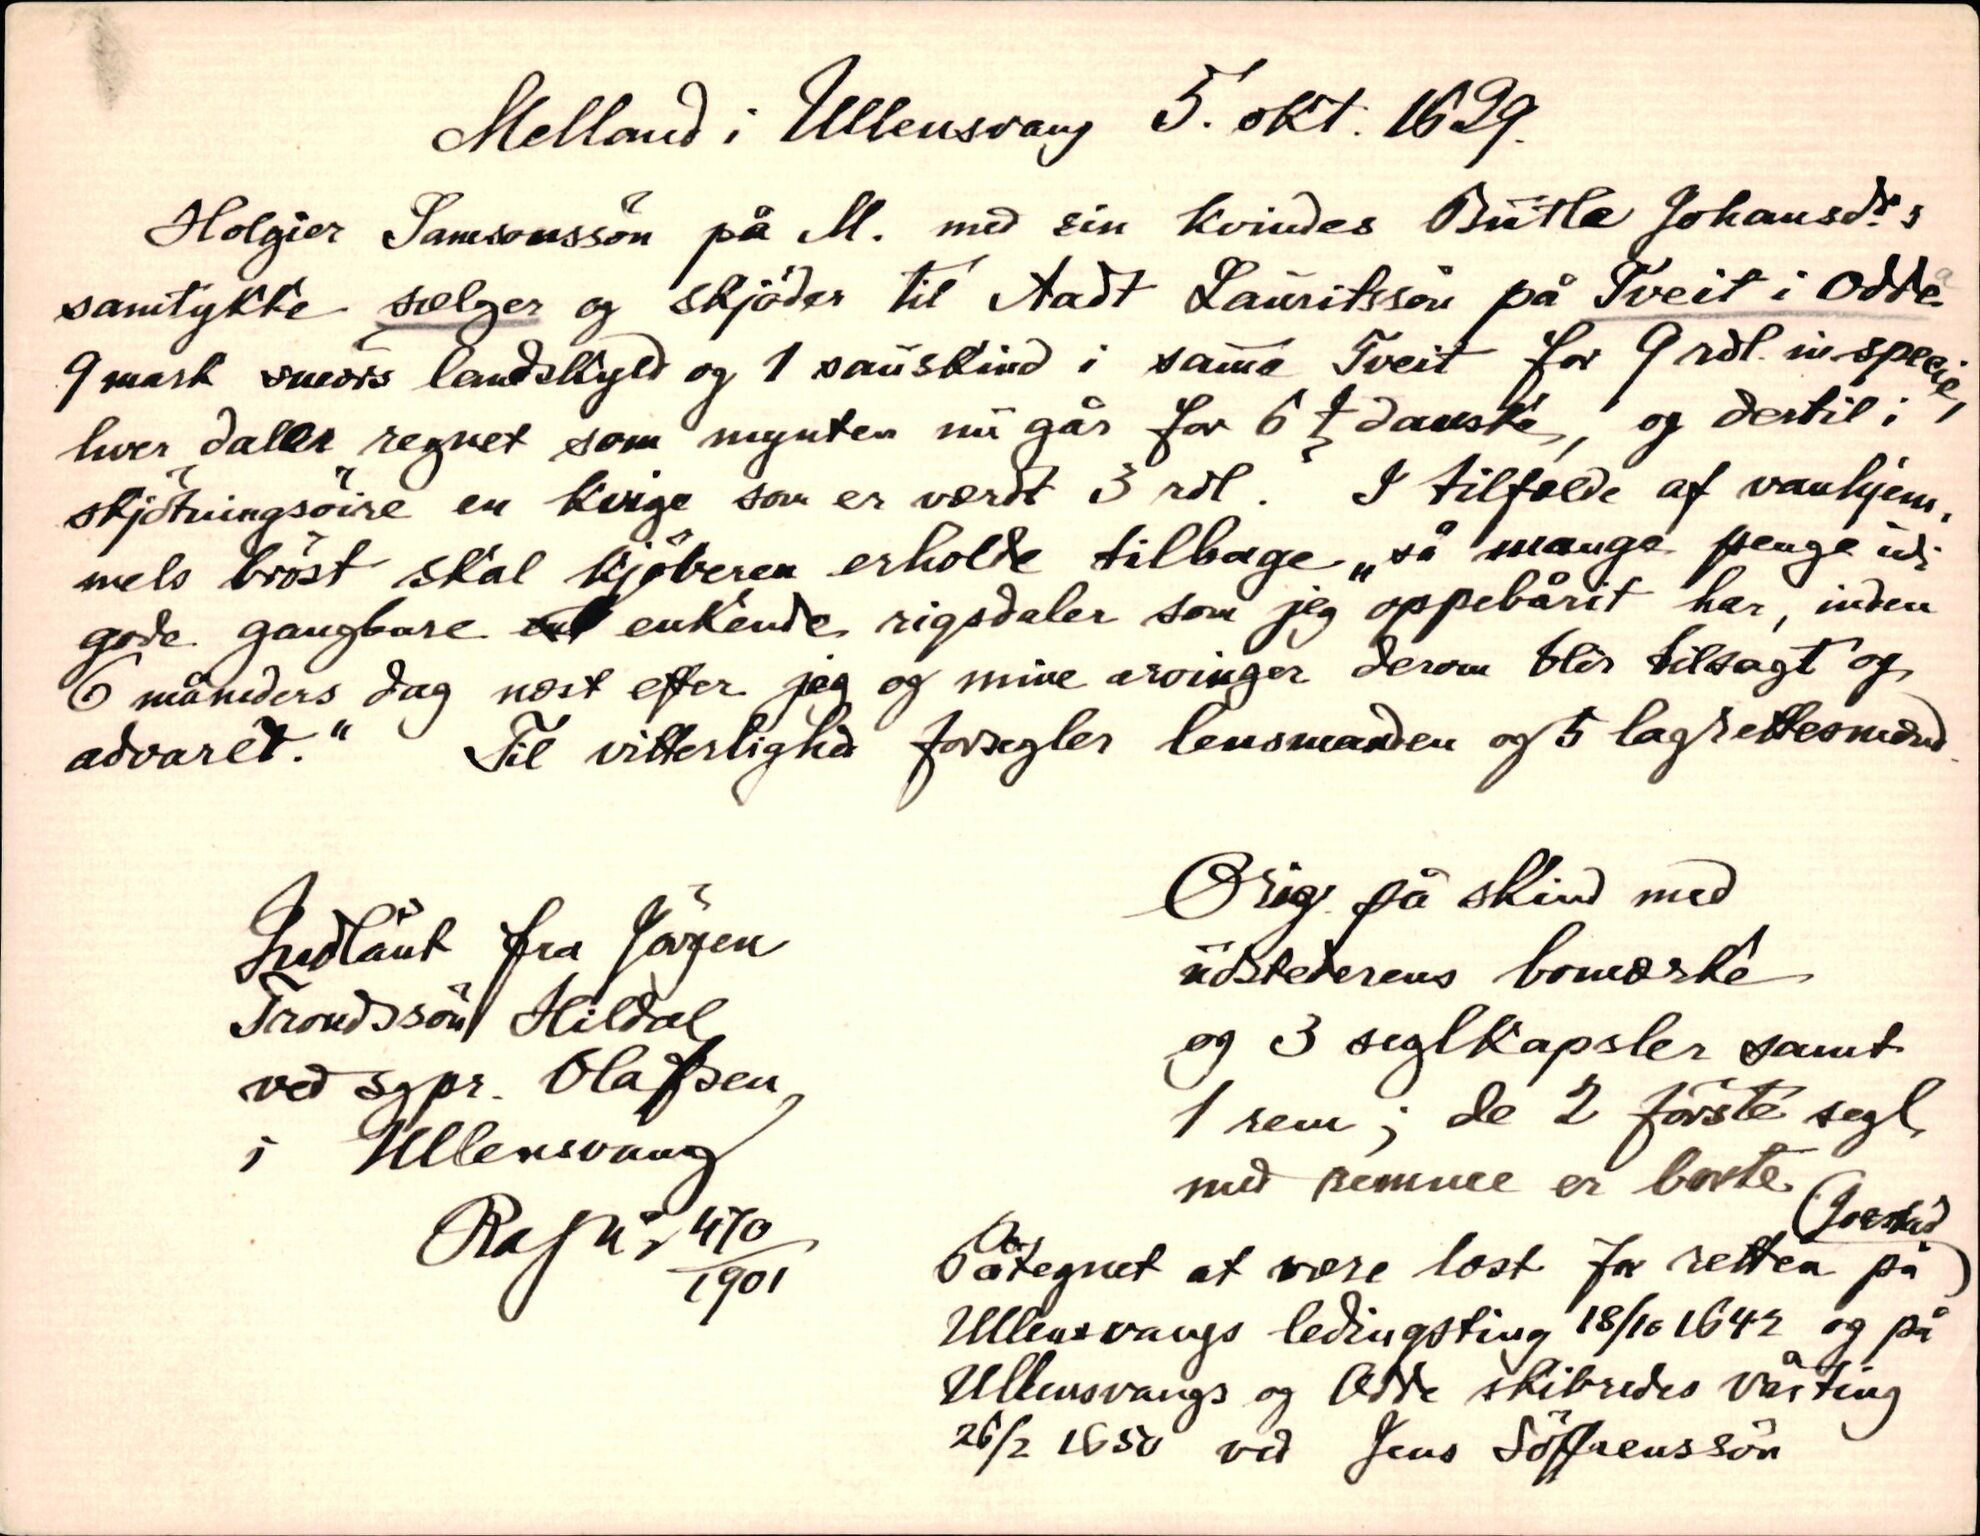 Melland i Ullensvang 5. okt. 1629.
Holgier Samsonssön på M. med sin kvindes Butle Johansdr.s
samtykke sælger og skjöder til Aadt Lauritssön på Tveit i Odde
9 mark smörs landskyld og 1 sauskind i samme Tveit for 9 rdl. in specie,
hver daler regnet som mynten nu går for 6 ꝑ danske, og dertil i
skjötningsöire en kvige som er værdt 3 rdl. I tilfælde af vanhjem-
mels bröst skal kjöberen erholde tilbage „så mange penge udi
gode gangbare enkende rigsdaler som jeg oppebårit har, inden
6 måneders dag næst efter jeg og mine arvinger derom blir tilsagt og
advaret.“ Til vitterlighed forsegler lensmanden og 5 lagrettesmænd.
Indlånt fra Jörgen
Trondssön Hildal
ved sgpr. Olafsen
i Ullensvang
470/1901
Orig. på skind med
udstederens bomærke
og 3 seglkapsler samt
1 rem; de 2 förste segl
med remme er borte.
Påtegnet at være læst for retten på
Ullensvangs ledingsting 18/10 1642 og på
Ullensvangs og Odde skibredes vårting
26/2 1650 ved Jens Söffrenssön